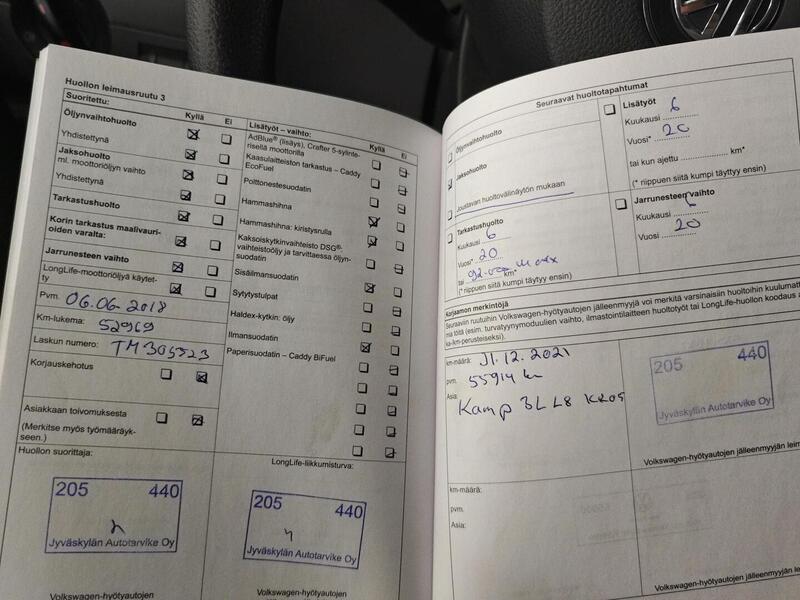 Huollon leimausruutu 3
Suoritettu: Kyllä Ei
Öljynvaihtohuolto
Yhdistettynä
Jaksohuolto
ml. moottoriöljyn vaihto
Yhdistettynä
Tarkastushuolto
Korin tarkastus maalivauri-
oiden varalta:
Jarrunesteen vaihto
LongLife-moottoriöljyä käytet-
ty
Pvm. 06.06-2018
Km-lukema: 52969
Laskun numero: TM305523
Korjauskehotus
Asiakkaan toivomuksesta
(Merkitse myös työmääräyk-
seen.)
Huollon suorittaja:
205 440
Jyväskylän Autotarvike Oy
Volkswagen-hyötyautojen
Lisätyöt – vaihto: Kyllä Ei
AdBlue® (lisäys), Crafter 5-sylinte-
risellä moottorilla
Kaasulaitteiston tarkastus – Caddy
EcoFuel
Polttonestesuodatin
Hammashihna
Hammashihna: kiristysrulla
Kaksoiskytkinvaihteisto DSG®-
vaihteistoöljy ja tarvittaessa öljyn-
suodatin
Sisäilmansuodatin
Sytytystulpat
Haldex-kytkin: öljy
Ilmansuodatin
Paperisuodatin – Caddy BiFuel
LongLife-liikkumisturva:
205 440
Jyväskylän Autotarvike Oy
Volkswagen-hyötyautojen
Seuraavat huoltotapahtumat
Öljynvaihtohuolto
Jaksohuolto
Joustavan huoltovälinäytön mukaan
Lisätyöt
Kuukausi 6
Vuosi* 20
tai kun ajettu km*
(* riippuen siitä kumpi täyttyy ensin)
Tarkastushuolto
Kuukausi 6
Vuosi* 20
tai km*
(* riippuen siitä kumpi täyttyy ensin)
Jarrunesteen vaihto
Kuukausi 6
Vuosi 20
Korjaamon merkintöjä
Seuraaviin ruutuihin Volkswagen-hyötyautojen jälleenmyyjä voi merkitä varsinaisiin huoltoihin kuulumatto
mia töitä (esim. turvatyynymoduulien vaihto, ilmastointilaitteen huoltotyöt tai LongLife-huollon koodaus a
ka-/km-perusteiseksi).
km-määrä: 31.12.2021
pvm. 55914 km
Asia:
205
Jyväskylän Autotarvike Oy
Volkswagen-hyötyautojen jälleenmyyjän leim
km-määrä:
pvm.
Asia:
Volkswagen-hyötyautojen jälleenmyyjän lei